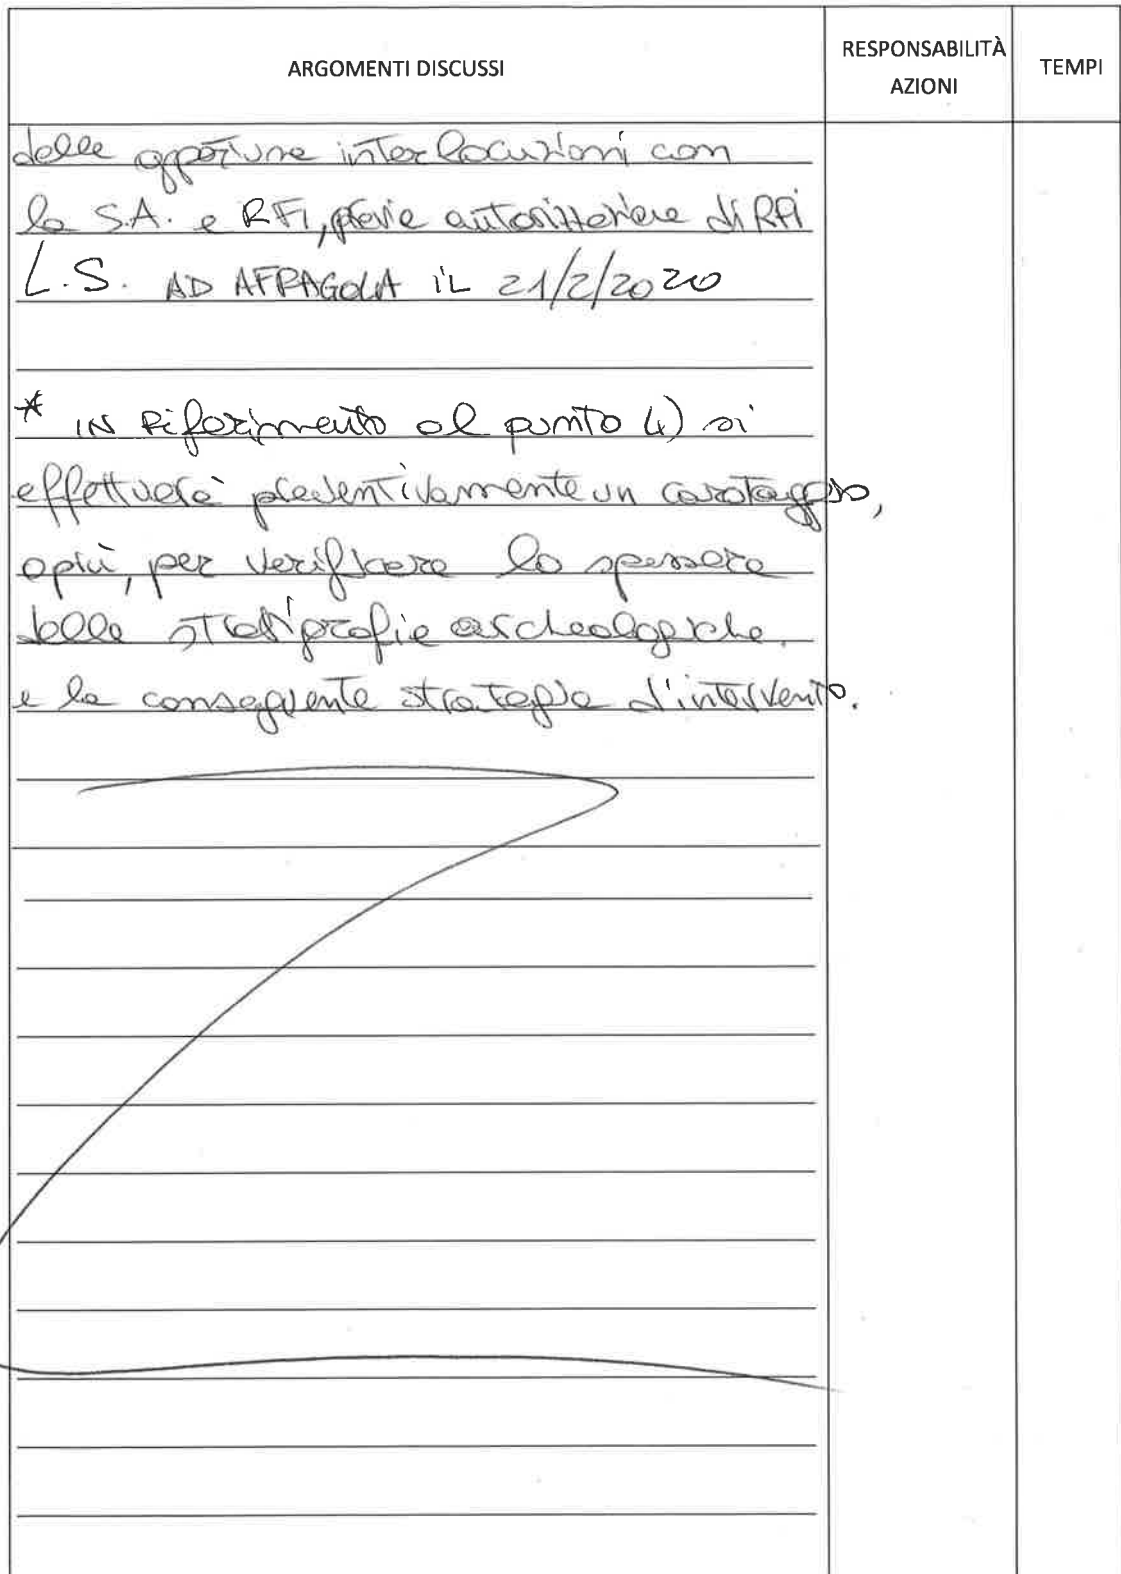 ARGOMENTI DISCUSSI
RESPONSABILITÀ
AZIONI
TEMPI
delle opportune interlocuzioni con
la S.A. e RFI, previa autorizzazione di RFI
L.S. AD AFRAGOLA IL 21/2/2020
* IN Riferimento al punto 4) si
effettuerà preventivamente un carotaggio,
o più, per verificare lo spessore
delle stratigrafie archeologiche.
e la conseguente strategia d'intervento.